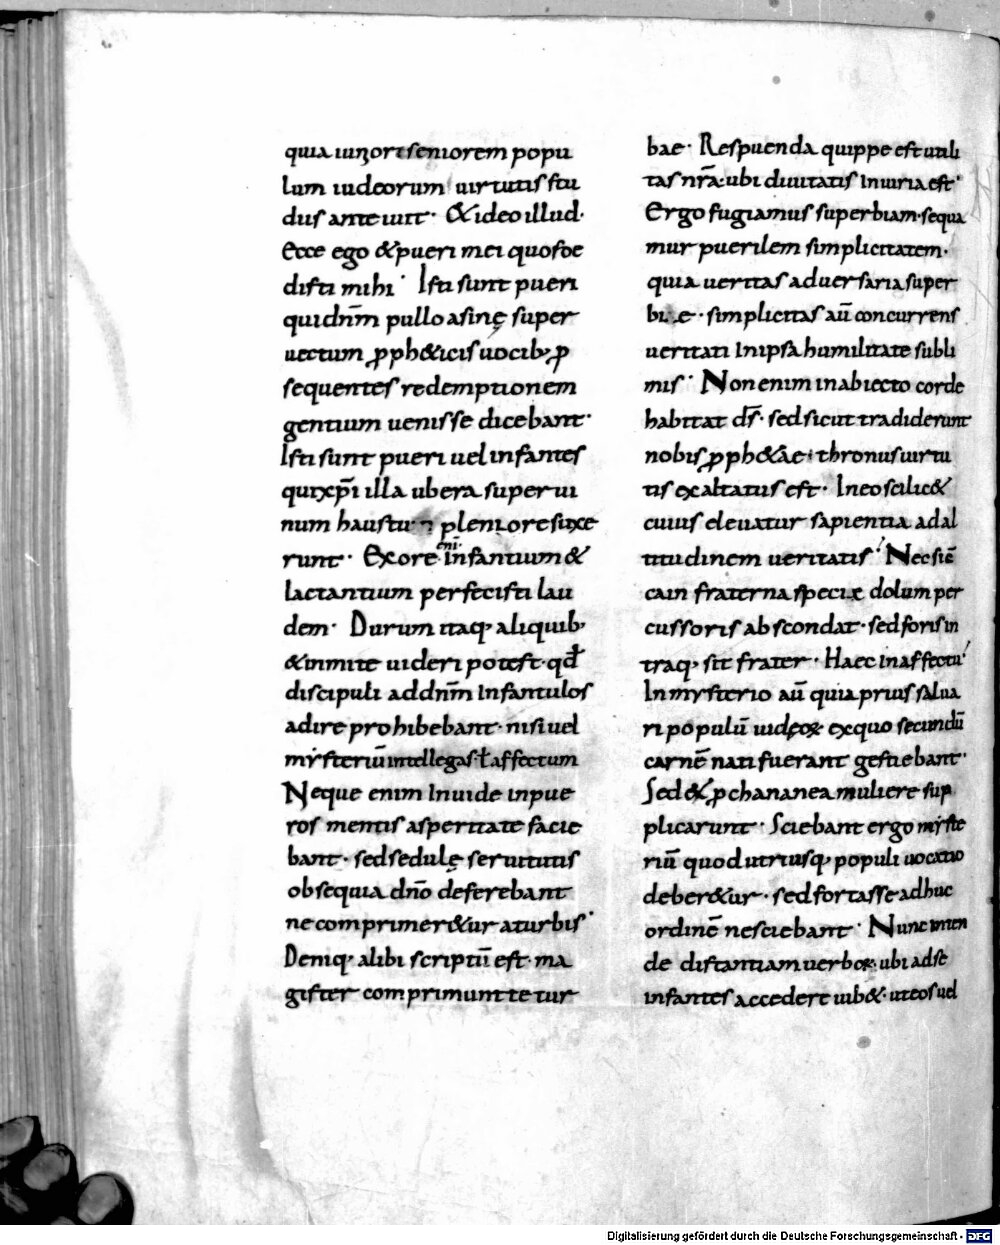 quia iuniori seniorem popu
lum iudeorum uirtutis stu
dus anteiuit· &ideo illud·
Ecce ego &pueri mei quos de
disti mihi· Isti sunt pueri
qui dn̄m pullo asinę super
uectum ꝓph&icis uocib; ꝓ
sequentes redemptionem
gentium uenisse dicebant·
Isti sunt pueri uel infantes
qui xp̄i illa ubera superui
num haustu pleniore suxe
runt· Exore eni· infantium &
lactantium perfecisti lau
dem· Durum itaq; aliquib;
&inmite uideri potest· qđ
discipuli addn̄m Infantulos
adire prohibebant· nisi uel
mẏsteriū intellegas ł affectum
Neque enim Inuide inpue
ros mentis asperitate facie
bant· sed sedulę seruitutis
obsequia dn̄o deferebant
ne comprimer&ur aturbis·
Deniq; alibi scriptū est· ma
gister comprimunt te tur
bae· Respuenda quippe est utili
tas nr̄a· ubi diuitatis Iniuria est·
Ergo fugiamus superbiam· sequa
mur puerilem simplicitatem·
quia ueritas aduersaria super
biae· simplicitas aū concurrens
ueritati Inipsa humilitate subli
mis· Non enim inabiecto corde
habitat ds̄· sed sicut tradiderunt
nobis ꝓph&ae· thronus uirtu
tis exaltatus est· Ineo scilic&
cuius eleuatur sapientia ad al
titudinem ueritatis· Nec siē
cain fraterna specie dolum per
cussoris abscondat· sed foris in
traq; sit frater· Haec inaffectu·
In mysterio aū quia prius salua
ri populū iudęoꝝ exquo secundū
carnē nati fuerant gestiebant·
Sed & ꝓ chananea muliere sup
plicarunt· Sciebant ergo mẏste
riū quod utriusq; populi uocatio
deber&ur· sed fortasse adhuc
ordinē nesciebant· Nunc inten
de distantiam uerboꝝ· ubi ad se
infantes accedere iub&· ut eos uel
Digitalisierung gefördert durch die Deutsche Forschungsgemeinschaft - DFG